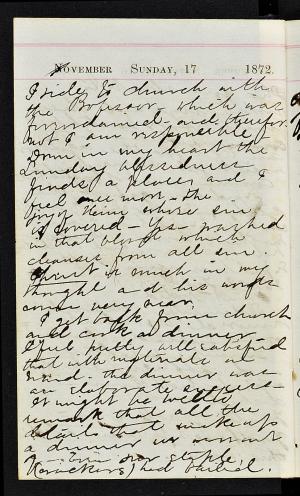 November Sunday, 17 1872.
I ride to church with
the Professor - which was
foreordained and therefor
not I am responsible
Down in my heart the
Sunday blessedness
finds a place, and I
feel once more - the
joy of Him whose sin
is covered - Yes - washed
in that blood which
cleanses from all sin.
Christ is much in my
thought and his words
come very near.
I get back from church
and cook a dinner
feel pretty well satisfied
that with materials at
hand, the dinner was
an elaborate success
It might be well to
remark that all the
details that make up
a dinner were
our staple,
(Crackers) had failed.